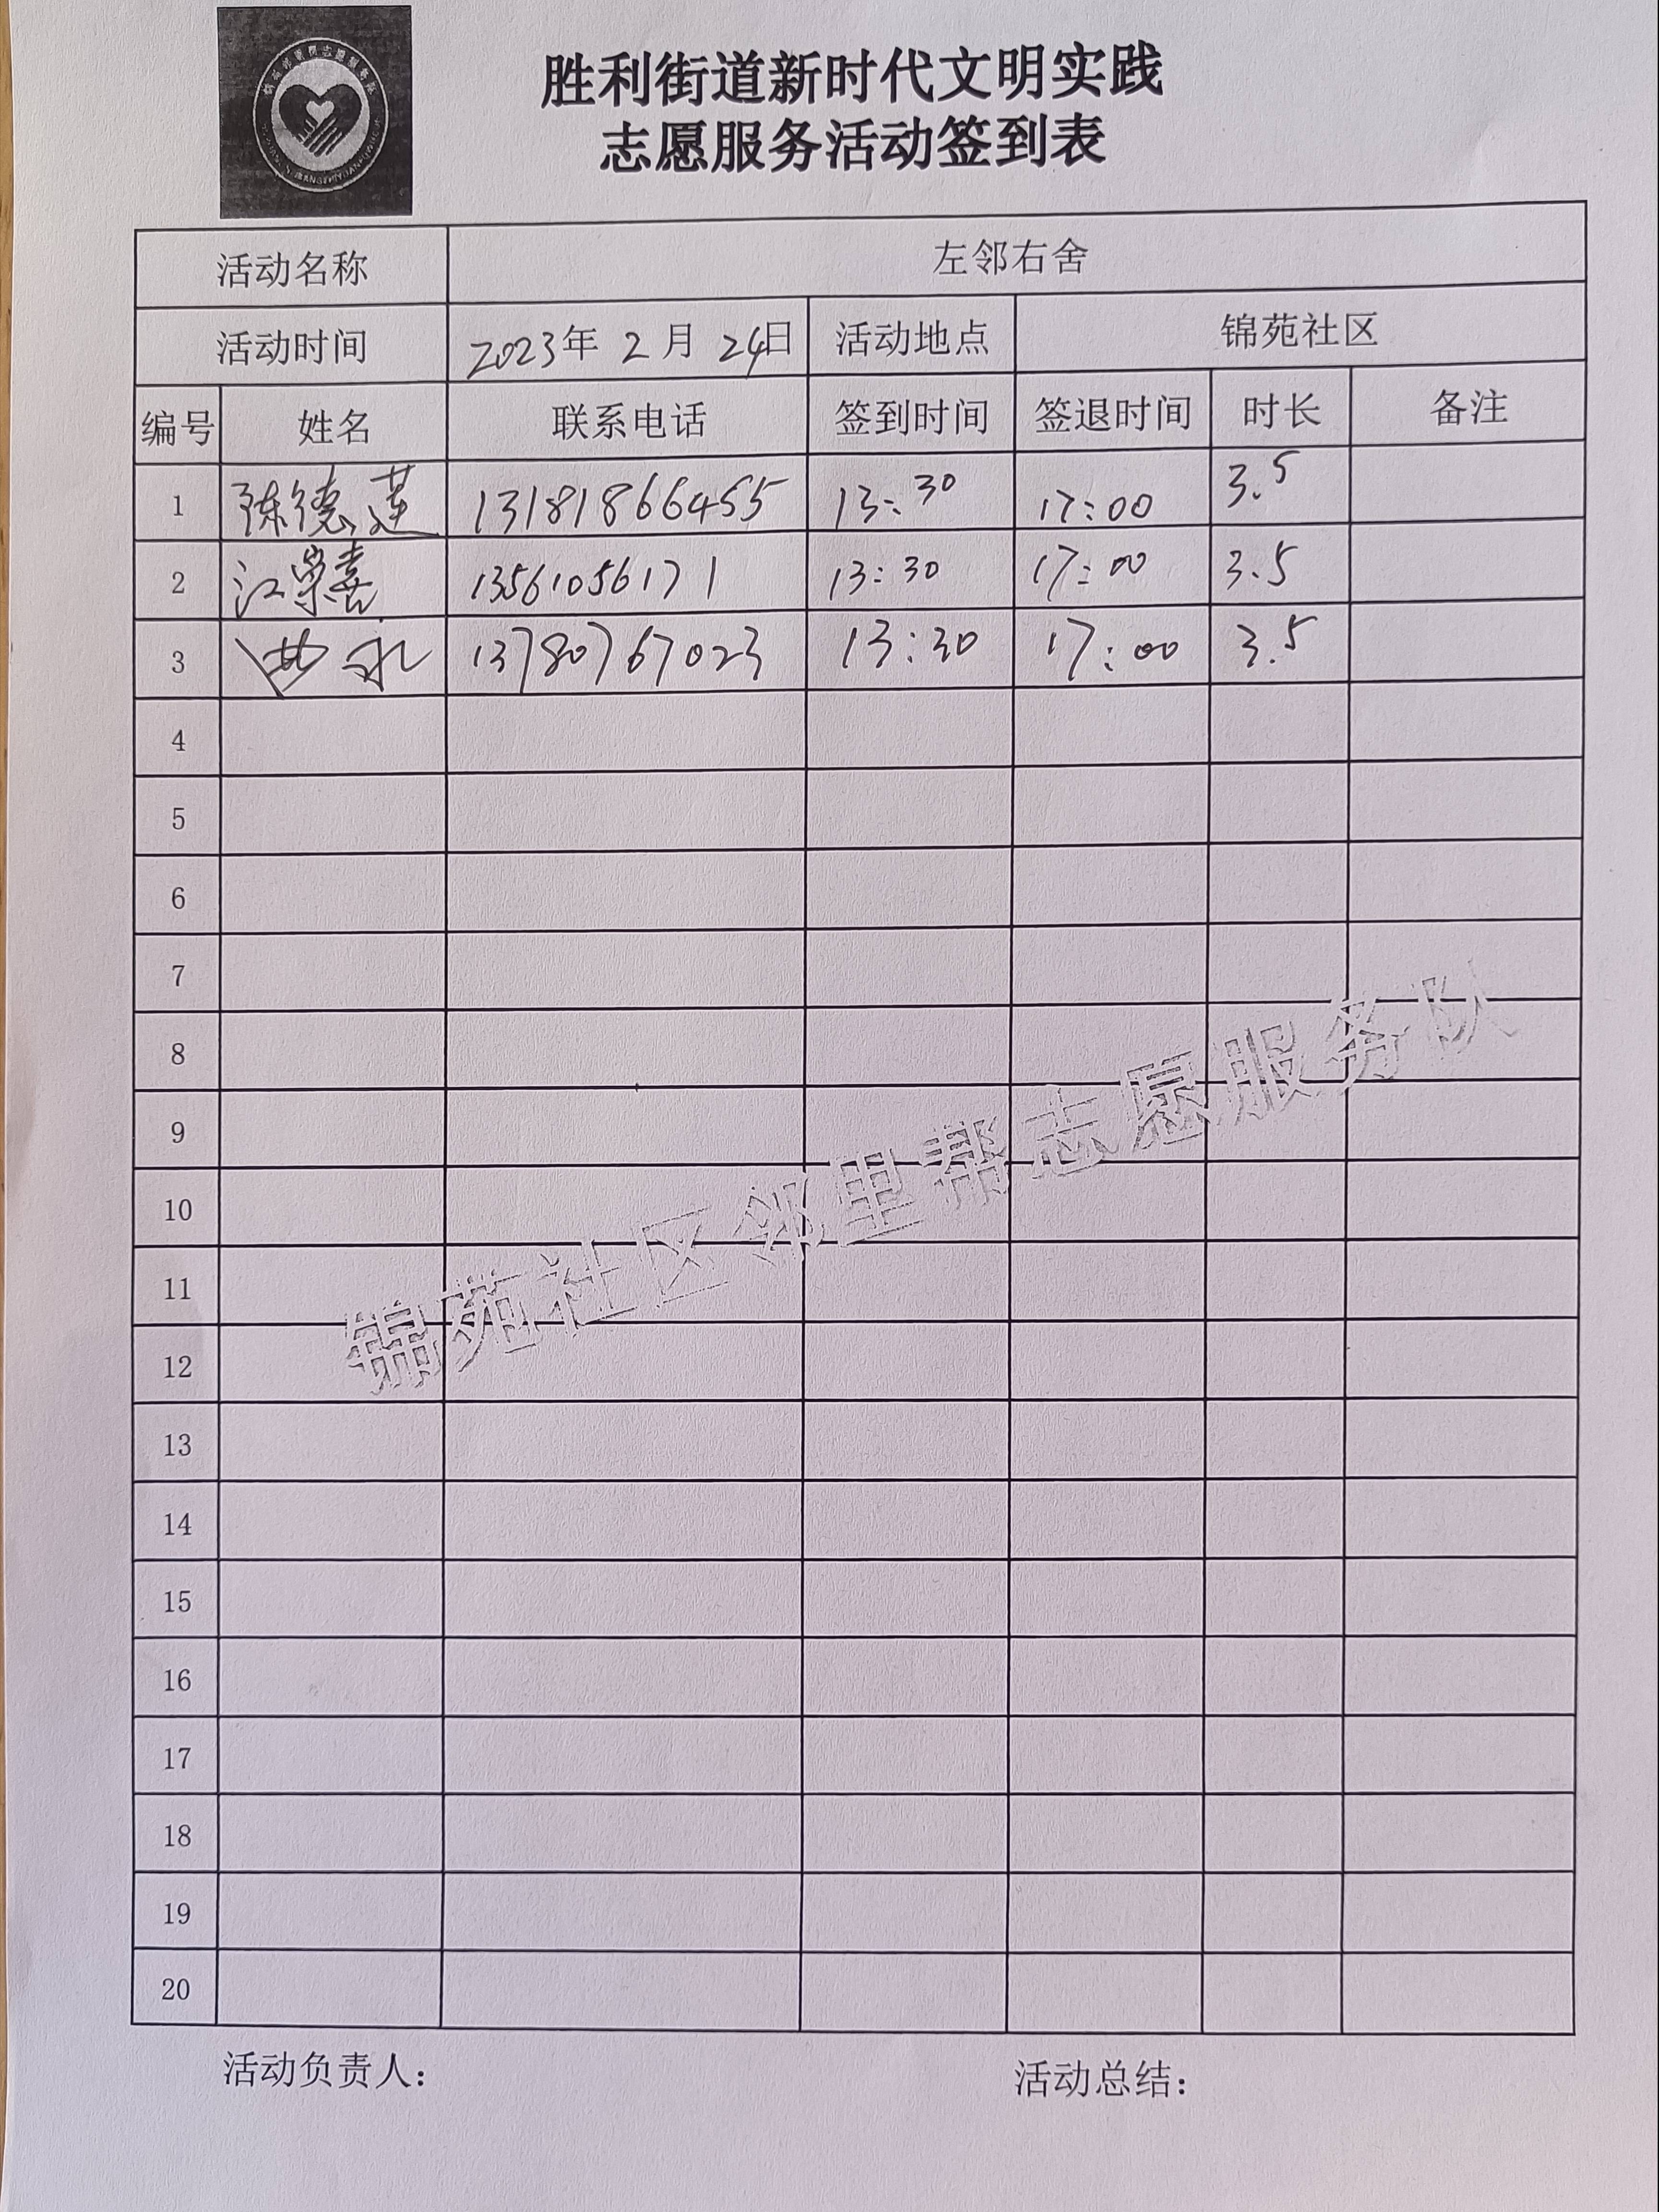 胜利街道新时代文明实践
志愿服务活动签到表
活动名称 左邻右舍
活动时间 2023年 2月 24日 活动地点 锦苑社区
编号 姓名 联系电话 签到时间 签退时间 时长 备注
1 陈德莲 13181866455 13:30 17:00 3.5
2 江崇喜 13561056171 13:30 17:00 3.5
3 曲永 13780767023 13:30 17:00 3.5
4
5
6
7
8
9
10
11
12
13
14
15
16
17
18
19
20
锦苑社区邻里帮志愿服务队
活动负责人： 活动总结：